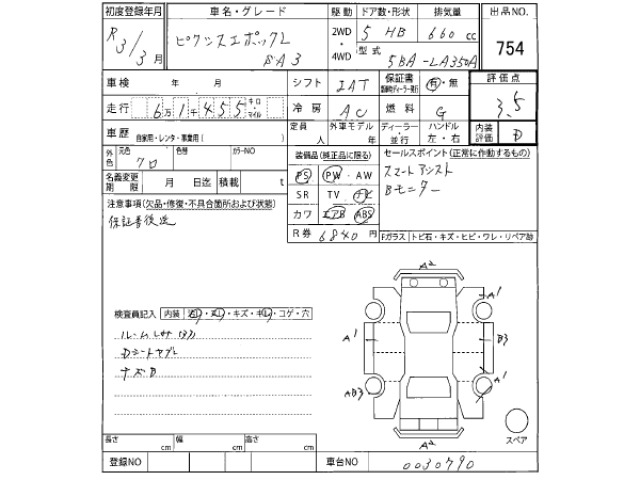 初度登録年月 車名・グレード 駆動 ドア数・形状 排気量 出品NO.
R3/3月 2WD・4WD 5 HB 660cc 754
型式 5BA-LA350A
SA3
車検 年 月 シフト IAT 保証書 有・無 評価点
走行 6万1千455 キロ・マイル 冷房 AC 燃料 G 3.5
車歴 自家用・レンタ・事業用( ) 定員 人 外車モデル 年 ディーラー・並行 ハンドル 左・右 内装評価 D
外色 元色 クロ 色替 カラーNO 装備品(純正品に限る) セールスポイント(正常に作動するもの)
名義変更期限 月 日迄 積載 t PS PW・AW スマートアシスト
SR TV Bモニター
注意事項(欠品・修復・不具合箇所および状態) カワ エアB ABS
保証書後送 R券 6840円 Fガラス トビ石・キズ・ヒビ・ワレ・リペア跡
A2
A1
検査員記入 内装 ・キズ・ ・コゲ・穴
A1 B3
Dシートヤブレ
A1
AB3
スペア
A2
長さ cm 幅 cm 高さ cm
登録NO 車台NO 0030790